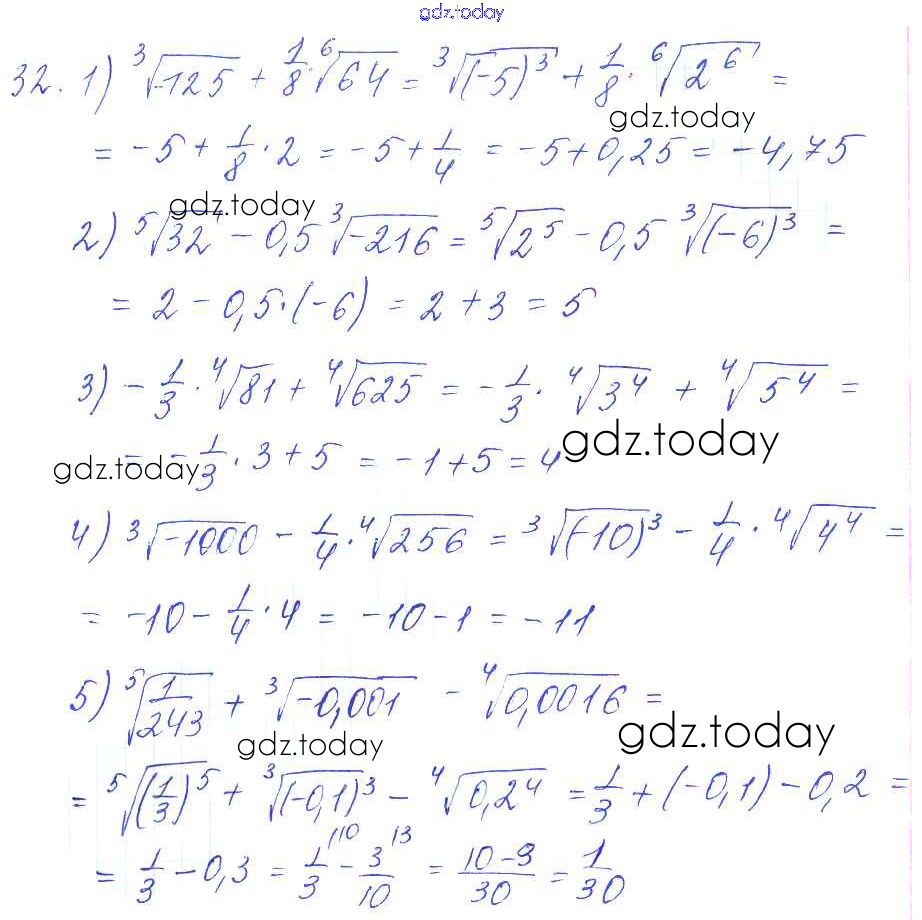 gdz.today
32. 1) ∛-125 + 1/8 · ⁶√64 = ∛(-5)³ + 1/8 · ⁶√2⁶ =
gdz.today
= -5 + 1/8 · 2 = -5 + 1/4 = -5 + 0,25 = -4,75
gdz.today
2) ⁵√32 - 0,5 ∛-216 = ⁵√2⁵ - 0,5 ∛(-6)³ =
= 2 - 0,5 · (-6) = 2 + 3 = 5
3) - 1/3 · ⁴√81 + ⁴√625 = - 1/3 · ⁴√3⁴ + ⁴√5⁴ =
gdz.today
gdz.today
= - 1/3 · 3 + 5 = -1 + 5 = 4
4) ∛-1000 - 1/4 · ⁴√256 = ∛(-10)³ - 1/4 · ⁴√4⁴ =
= -10 - 1/4 · 4 = -10 - 1 = -11
5) ⁵√1/243 + ∛-0,001 - ⁴√0,0016 =
gdz.today
gdz.today
= ⁵√(1/3)⁵ + ∛(-0,1)³ - ⁴√0,2⁴ = 1/3 + (-0,1) - 0,2 =
= 1/3 - 0,3 = 1/3 /10 - 3/10 /3 = 10-9/30 = 1/30